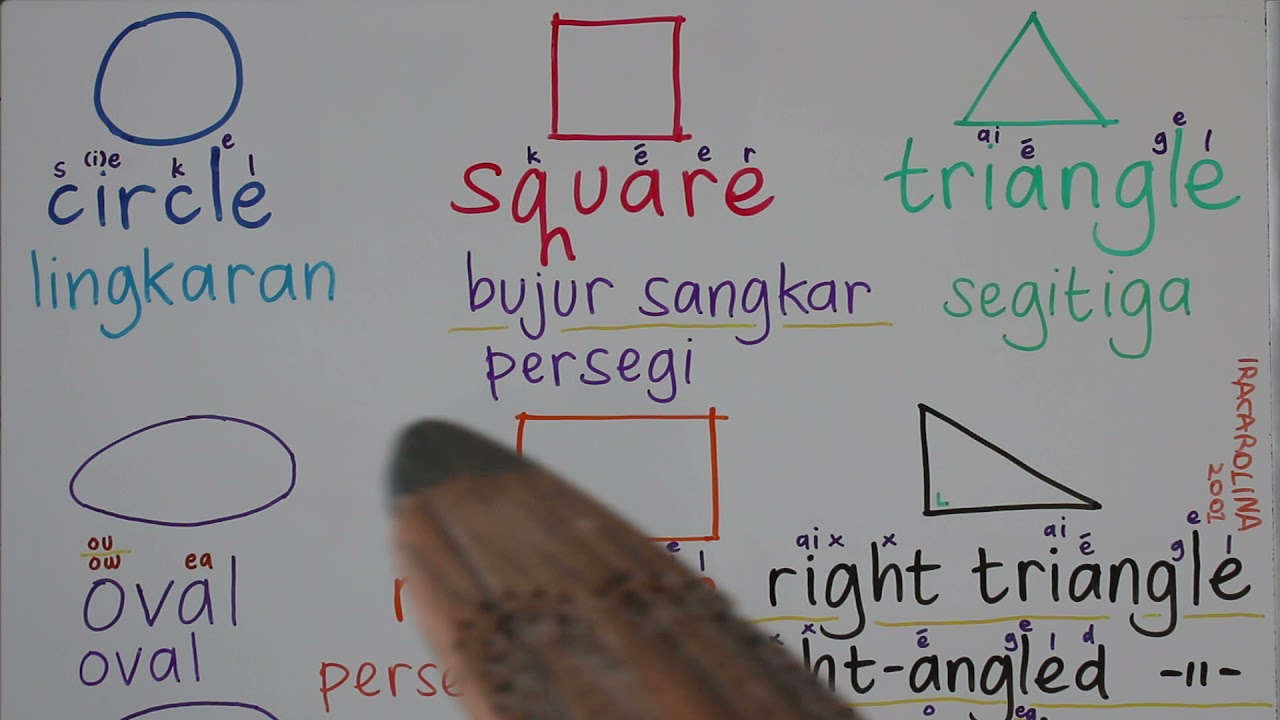 s (i)e k e l
circle
lingkaran
k ē e r
square
h
bujur sangkar
persegi
ai ē g e l
triangle
segitiga
IRACAROLINA
2001
ou
ow ea
oval
oval
e l
ai x x ai ē g e l
right triangle
x ē g e l d
-angled -11-